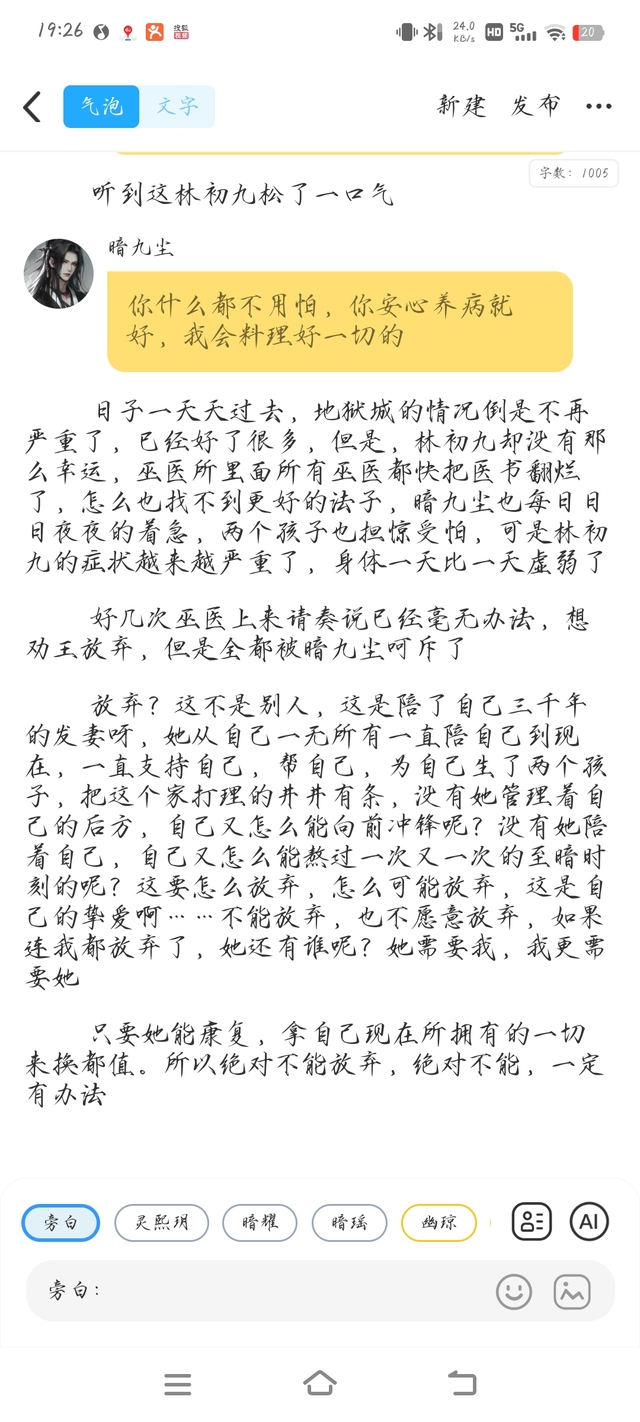 19:26
搜狐视频
24.0 KB/s
HD
5G
20
气泡 文字 新建 发布
字数：1005
听到这林初九松了一口气
暗九尘
你什么都不用怕，你安心养病就
好，我会料理好一切的
日子一天天过去，地狱城的情况倒是不再
严重了，已经好了很多，但是，林初九却没有那
么幸运，巫医所里面所有巫医都快把医书翻烂
了，怎么也找不到更好的法子，暗九尘也每日日
日夜夜的着急，两个孩子也担惊受怕，可是林初
九的症状越来越严重了，身体一天比一天虚弱了
好几次巫医上来请奏说已经毫无办法，想
劝王放弃，但是全都被暗九尘呵斥了
放弃？这不是别人，这是陪了自己三千年
的发妻呀，她从自己一无所有一直陪自己到现
在，一直支持自己，帮自己，为自己生了两个孩
子，把这个家打理的井井有条，没有她管理着自
己的后方，自己又怎么能向前冲锋呢？没有她陪
着自己，自己又怎么能熬过一次又一次的至暗时
刻的呢？这要怎么放弃，怎么可能放弃，这是自
己的挚爱啊……不能放弃，也不愿意放弃，如果
连我都放弃了，她还有谁呢？她需要我，我更需
要她
只要她能康复，拿自己现在所拥有的一切
来换都值。所以绝对不能放弃，绝对不能，一定
有办法
旁白 灵熙玥 暗耀 暗瑶 幽琼 AI
旁白：